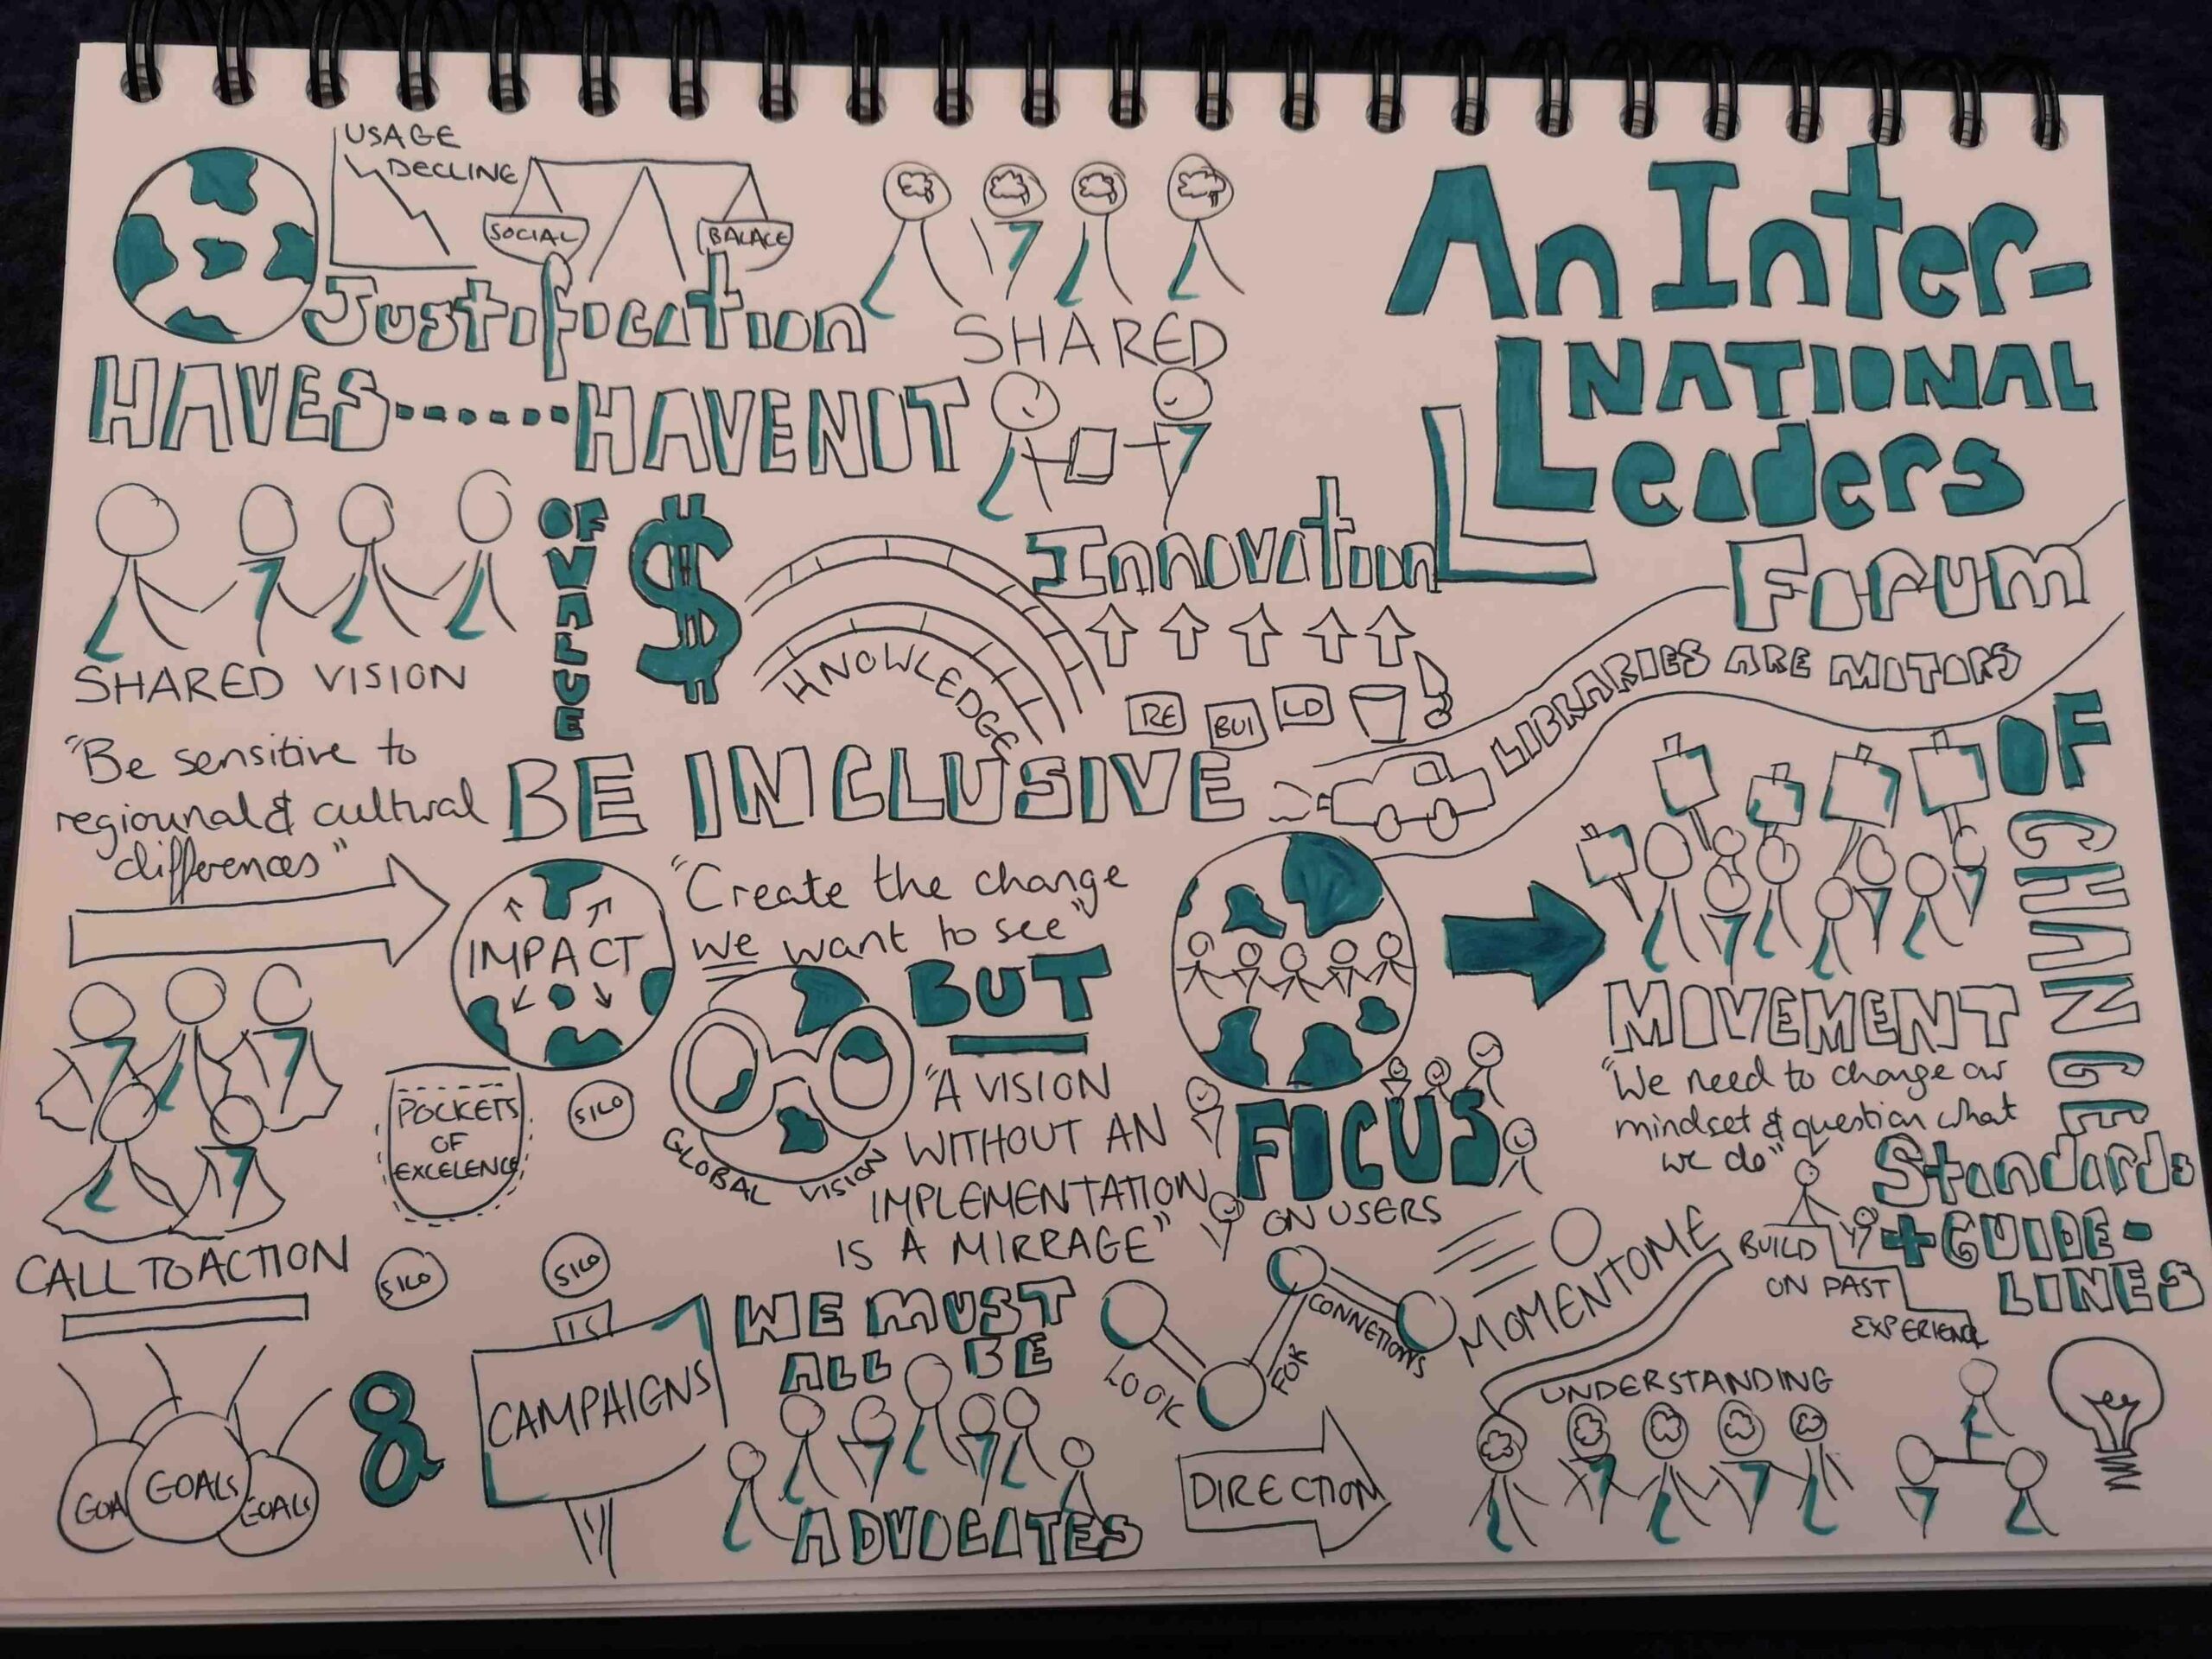 An Inter-
NATIONAL
Leaders
Forum
USAGE
DECLINING
SOCIAL
BALACE
Justification
SHARED
HAVES......HAVENOT
SHARED VISION
OF
VALUE
$
KNOWLEDGE
Innovation
RE
BUI
LD
LIBRARIES ARE MOTORS
OF
CHANGE
"Be sensitive to
regiounal & cultural
differences"
BE INCLUSIVE
IMPACT
"Create the change
we want to see"
BUT
"A VISION
WITHOUT AN
IMPLEMENTATION
IS A MIRRAGE"
GLOBAL VISION
POCKETS
OF
EXCELENCE
SILO
SILO
SILO
CALL TO ACTION
FOCUS
ON USERS
MOVEMENT
"We need to change our
mindset & question what
we do"
Standards
+ GUIDE-
LINES
BUILD
ON PAST
EXPERIENCE
GOA
GOALS
GOALS
&
CAMPAIGNS
WE MUST
ALL BE
ADVOCATES
LOOK
FOR
CONNETIONS
MOMENTOME
DIRECTION
UNDERSTANDING